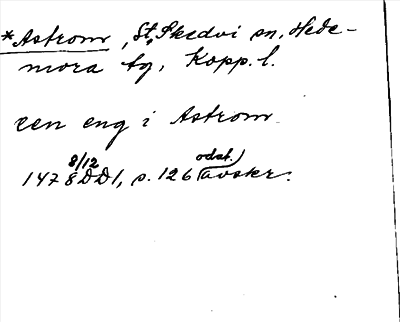 *Astrom, St. Skedvi sn, Hede-
mora tg, Kopp. l.
een eng i Astrom
1478 8/12 DD1, s. 126 (odat.) avskr.